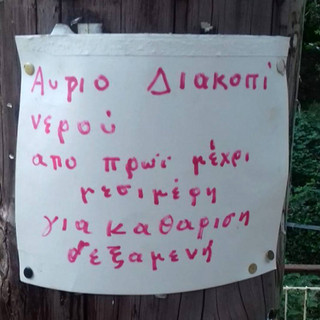 Αυριο Διακοπί
νερού
απο πρωϊ μέχρι
μεσιμέρη
για καθαριση
δεξαμενή